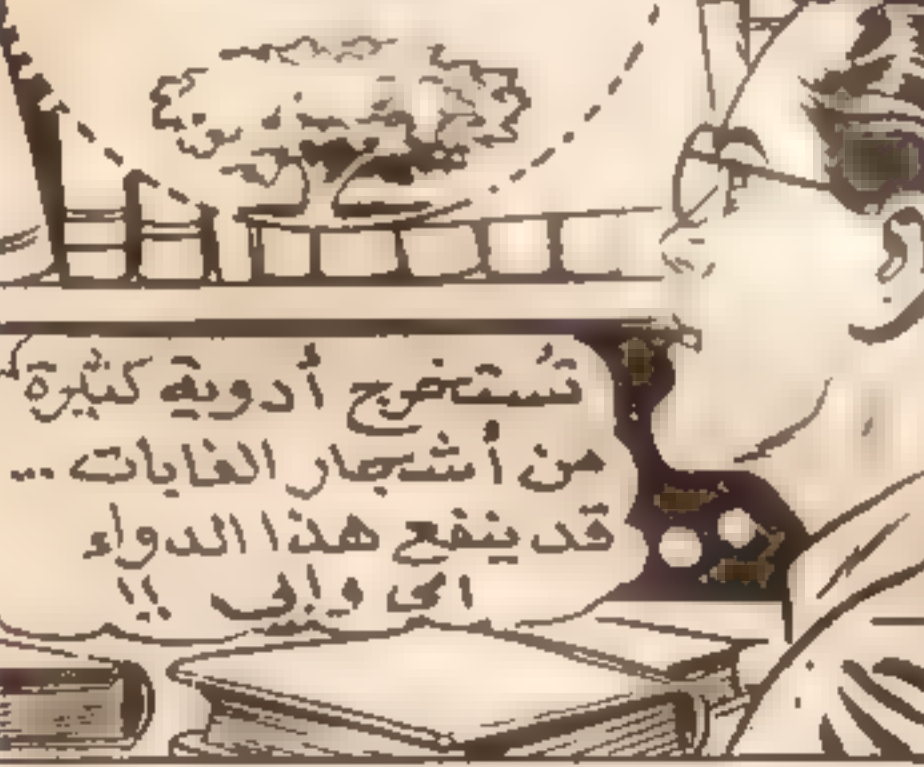 تُستخرج أدوية كثيرة
من أشجار الغابات ...
قد ينفع هذا الدواء
امي وابي !!